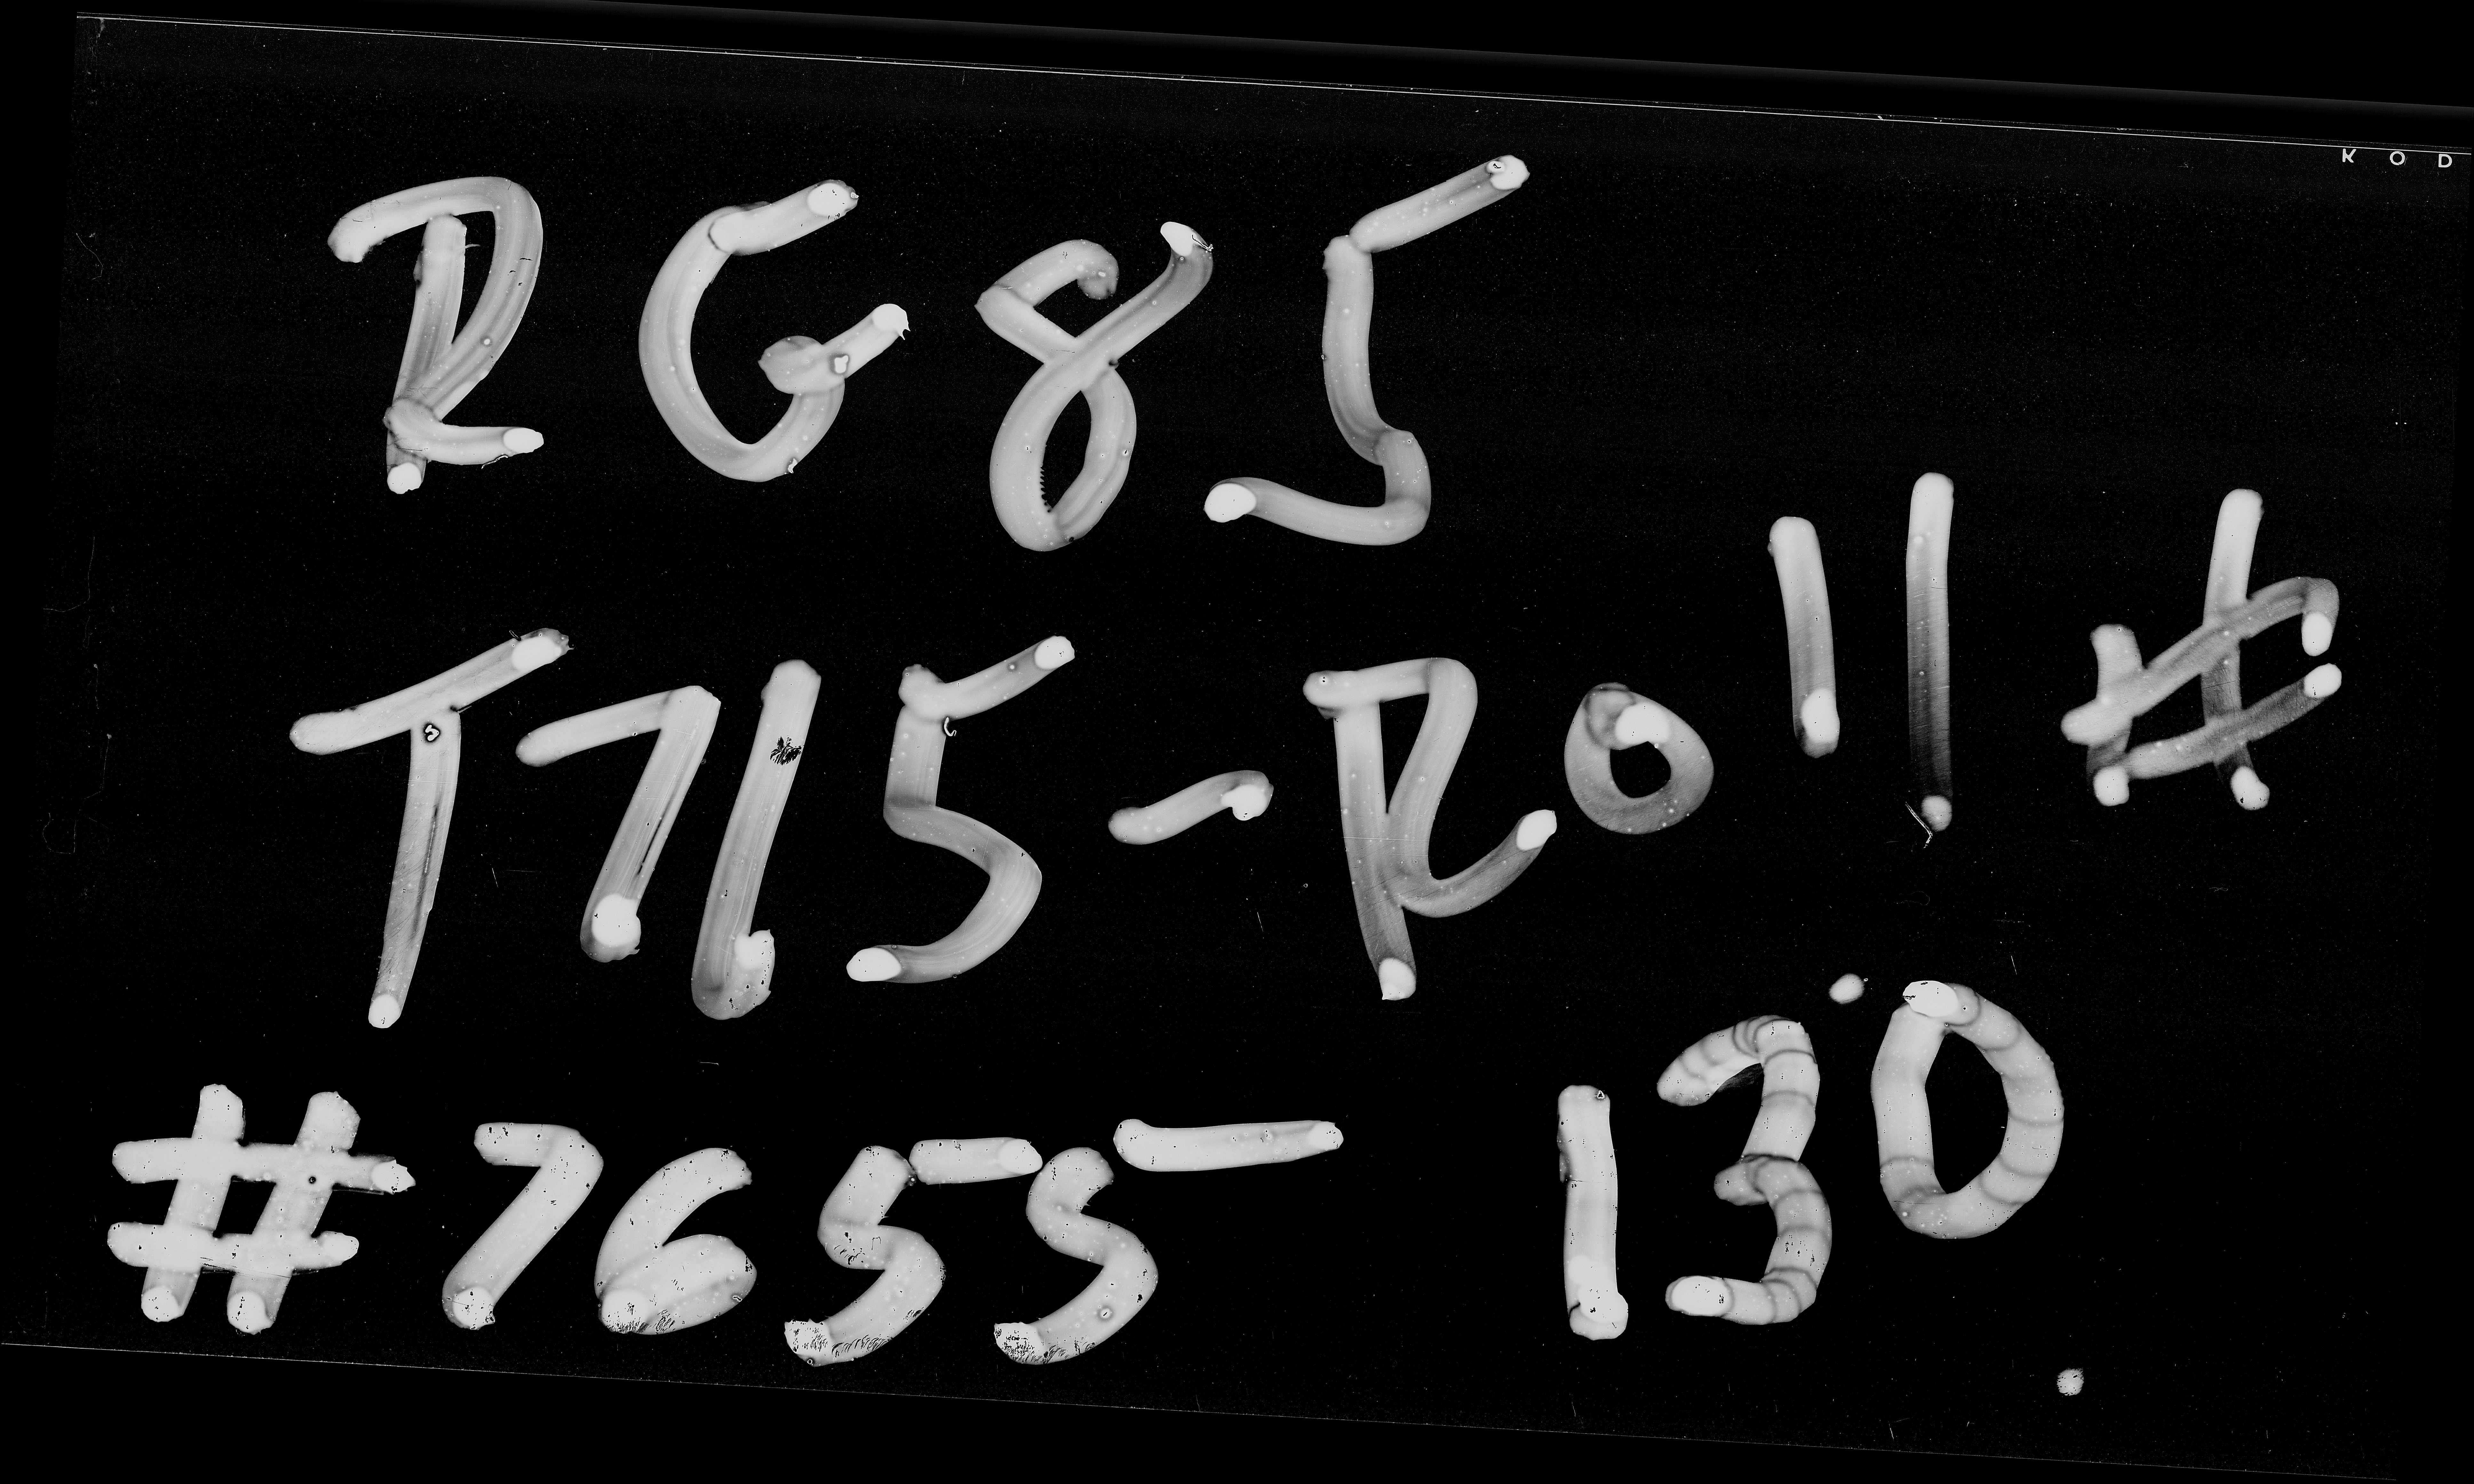 KOD
RG85
T715-Roll#
#7655 130